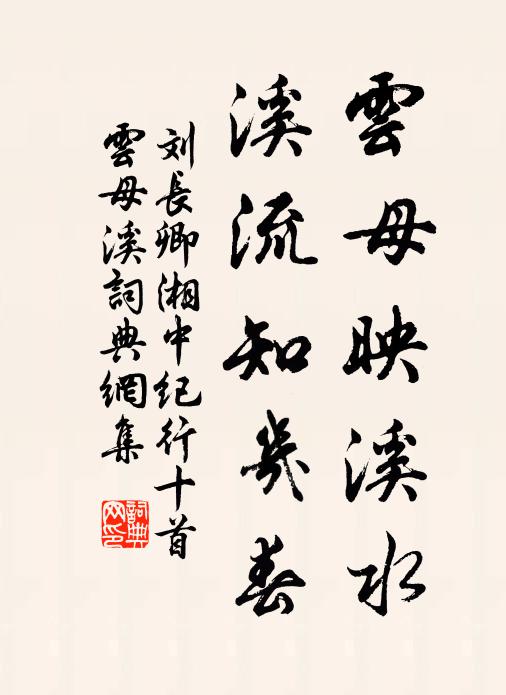 雲母映溪水
溪流知幾春
刘長卿湘中纪行十首
雲母溪詞典網集
詞典网印